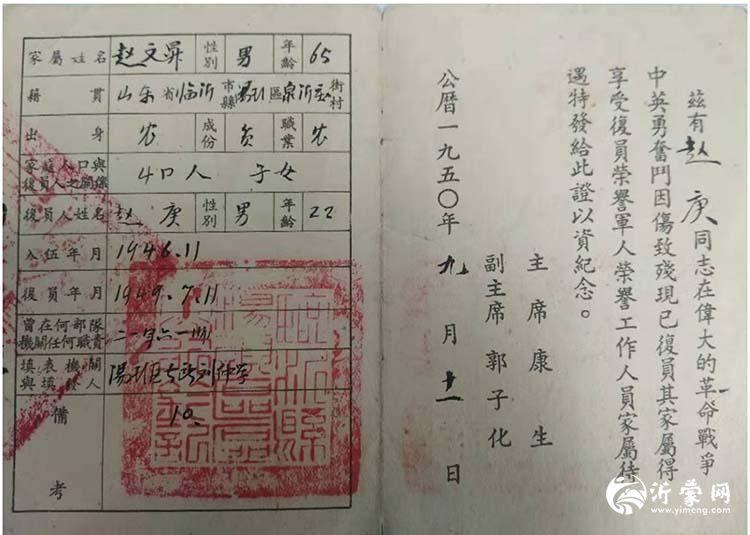 家屬姓名 赵文昇 性別 男 年齡 65
籍貫 山东省临沂市縣湯頭區泉沂庄街村
出身 农 成份 貧 職業 农
家庭人口與復員人之關係 4口人 子女
復員人姓名 赵庚 性別 男 年齡 22
入伍年月 1946.11
復員年月 1949.7.11
曾在何部隊機關任何職責 二一
填表機關與填表人 湯
備考 10.
茲有赵庚同志在偉大的革命戰爭
中英勇奮鬥因傷致殘現已復員其家屬得
享受復員榮譽軍人榮譽工作人員家屬待
遇特發給此證以資紀念。
主席康生
副主席郭子化
公曆一九五〇年九月十一日
沂蒙网
www.yimeng.com